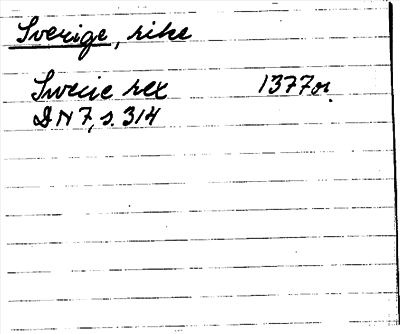 Sverige, rike
Swecie rex 1377 or.
DN 7, s. 314